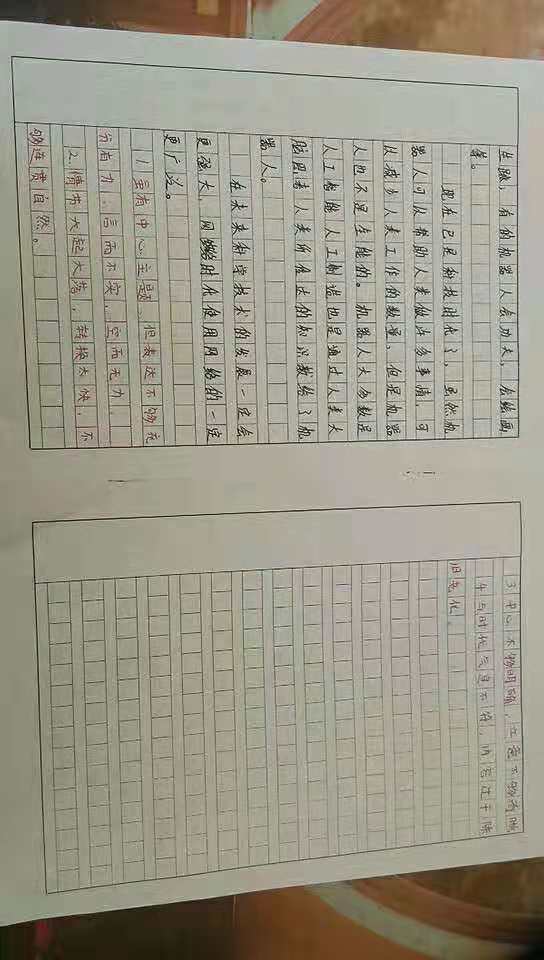 生跳，有的机器人会功夫，会绘画
等。
现在已是科技时代了，虽然机
器人可以帮助人类做许多事情，可
以减少人类工作的数量，但是机器
人也不是全能的。机器人大多数是
人工智能人工制造也是通过人类大
脑思考人类所传达的知识数给了机
器人。
在未来科学技术的发展一定会
更强大，网络时代使用网络的一定
更广泛。
1.虽有中心、主题，但表达不够充
分有力，言而不实，空而无力。
2.情节大起大落，转换太快，不
够连贯自然。
3.中心不够明确，立意不够清晰
4.与时代气息不符，内容过于陈
旧老化。